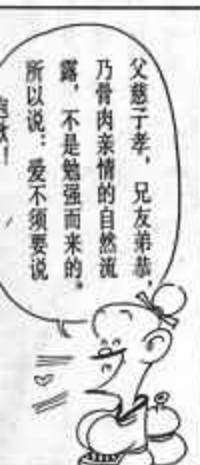 父慈子孝，兄友弟恭，
乃骨肉亲情的自然流
露，不是勉强而来的。
所以说：爱不须要说